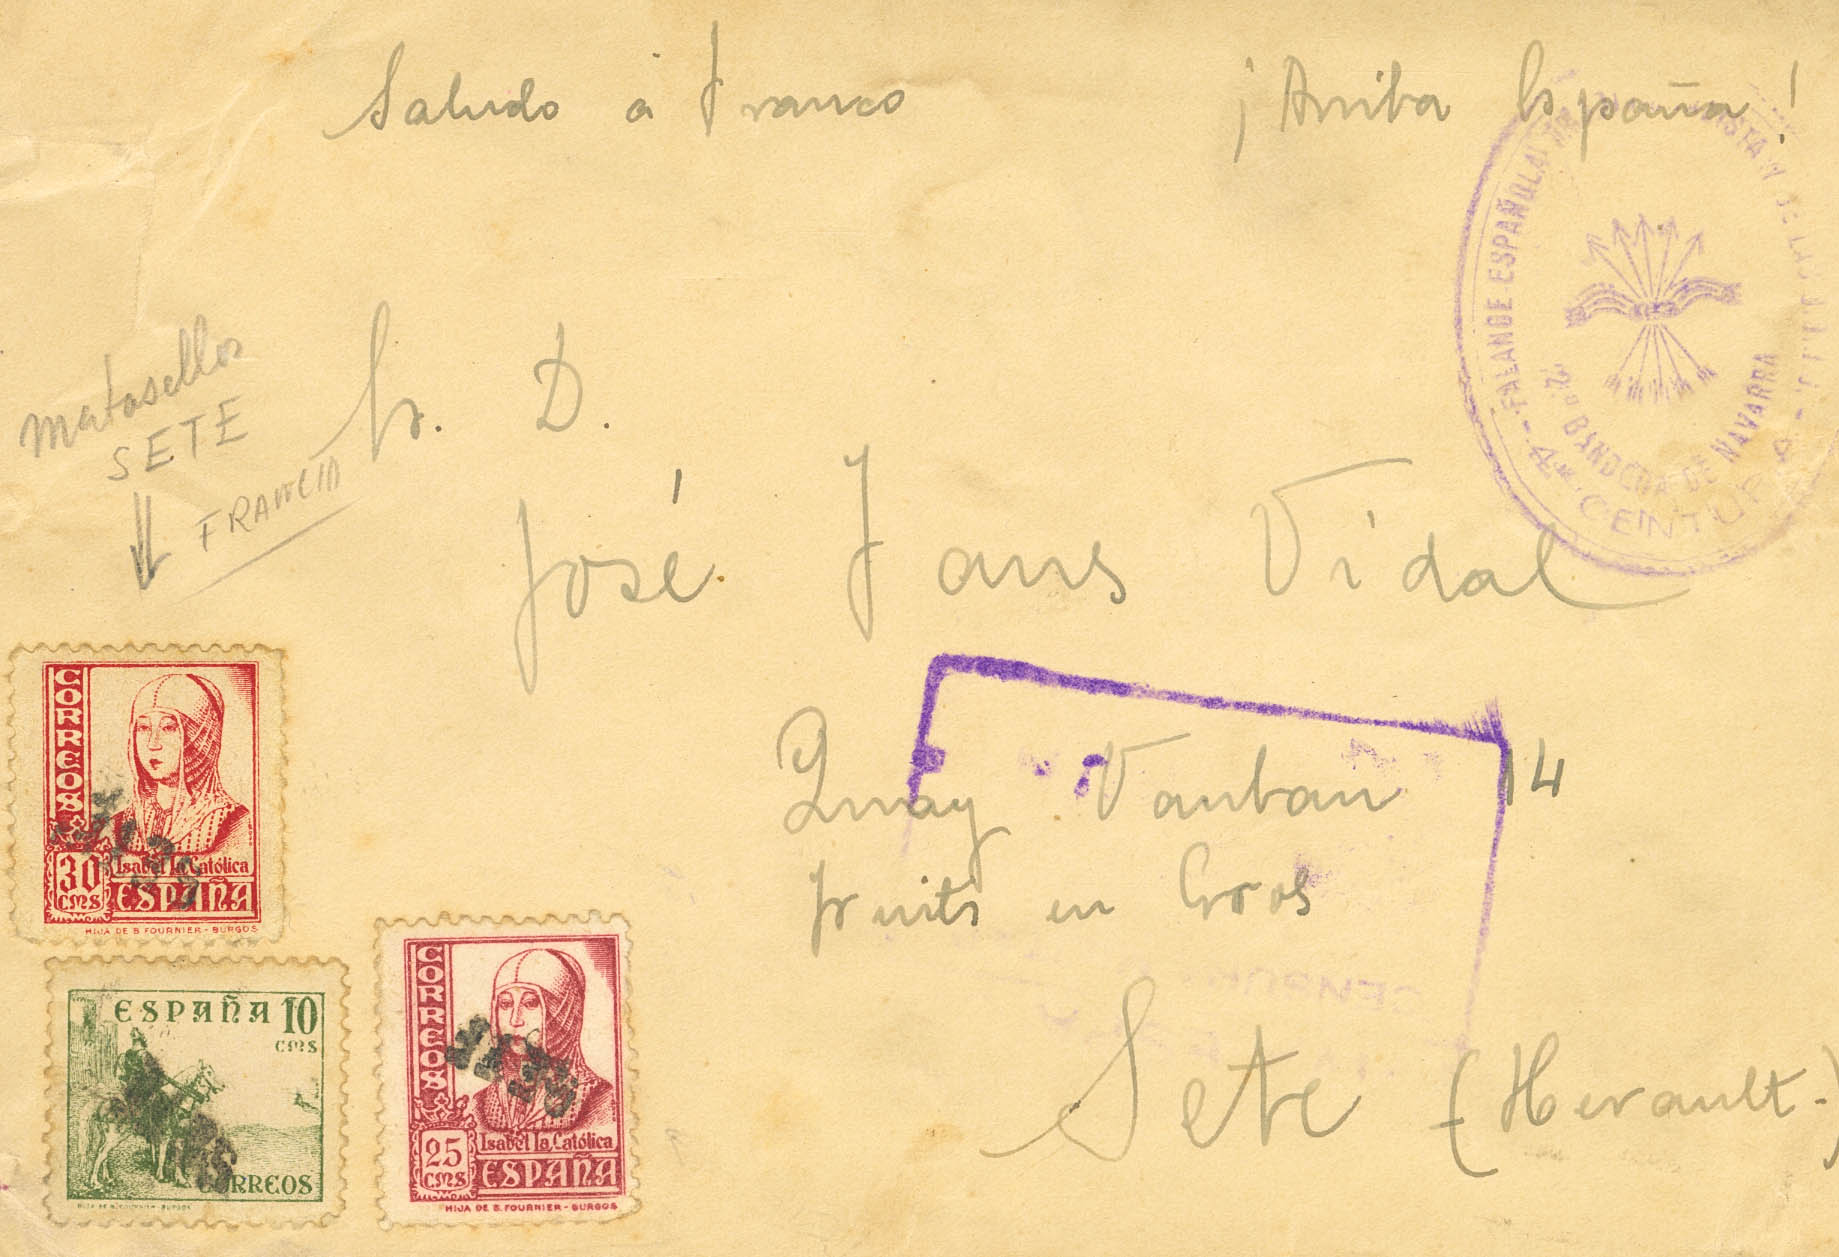 Saludo à Franco ¡Arriba España!
FALANGE ESPAÑOLA
2ª BANDERA DE NAVARRA
4ª CENTURIA
matasellos
SETE
FRANCIA
Sr. D.
José Jans Vidal
Quay Vauban 14
fruits en Gros
Sete (Herault.)
CORREOS
30
CMS
Isabel la Católica
ESPAÑA
HIJA DE B. FOURNIER - BURGOS
SETE
ESPAÑA 10
CMS
CORREOS
HIJA DE B. FOURNIER - BURGOS
CORREOS
25
CMS
Isabel la Católica
ESPAÑA
HIJA DE B. FOURNIER - BURGOS
SETE